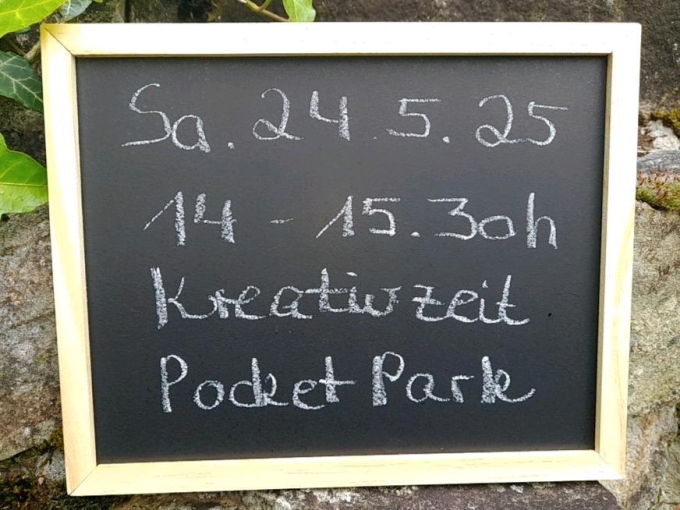 Sa. 24.5.25
14 - 15.30h
Kreativzeit
Pocket Park